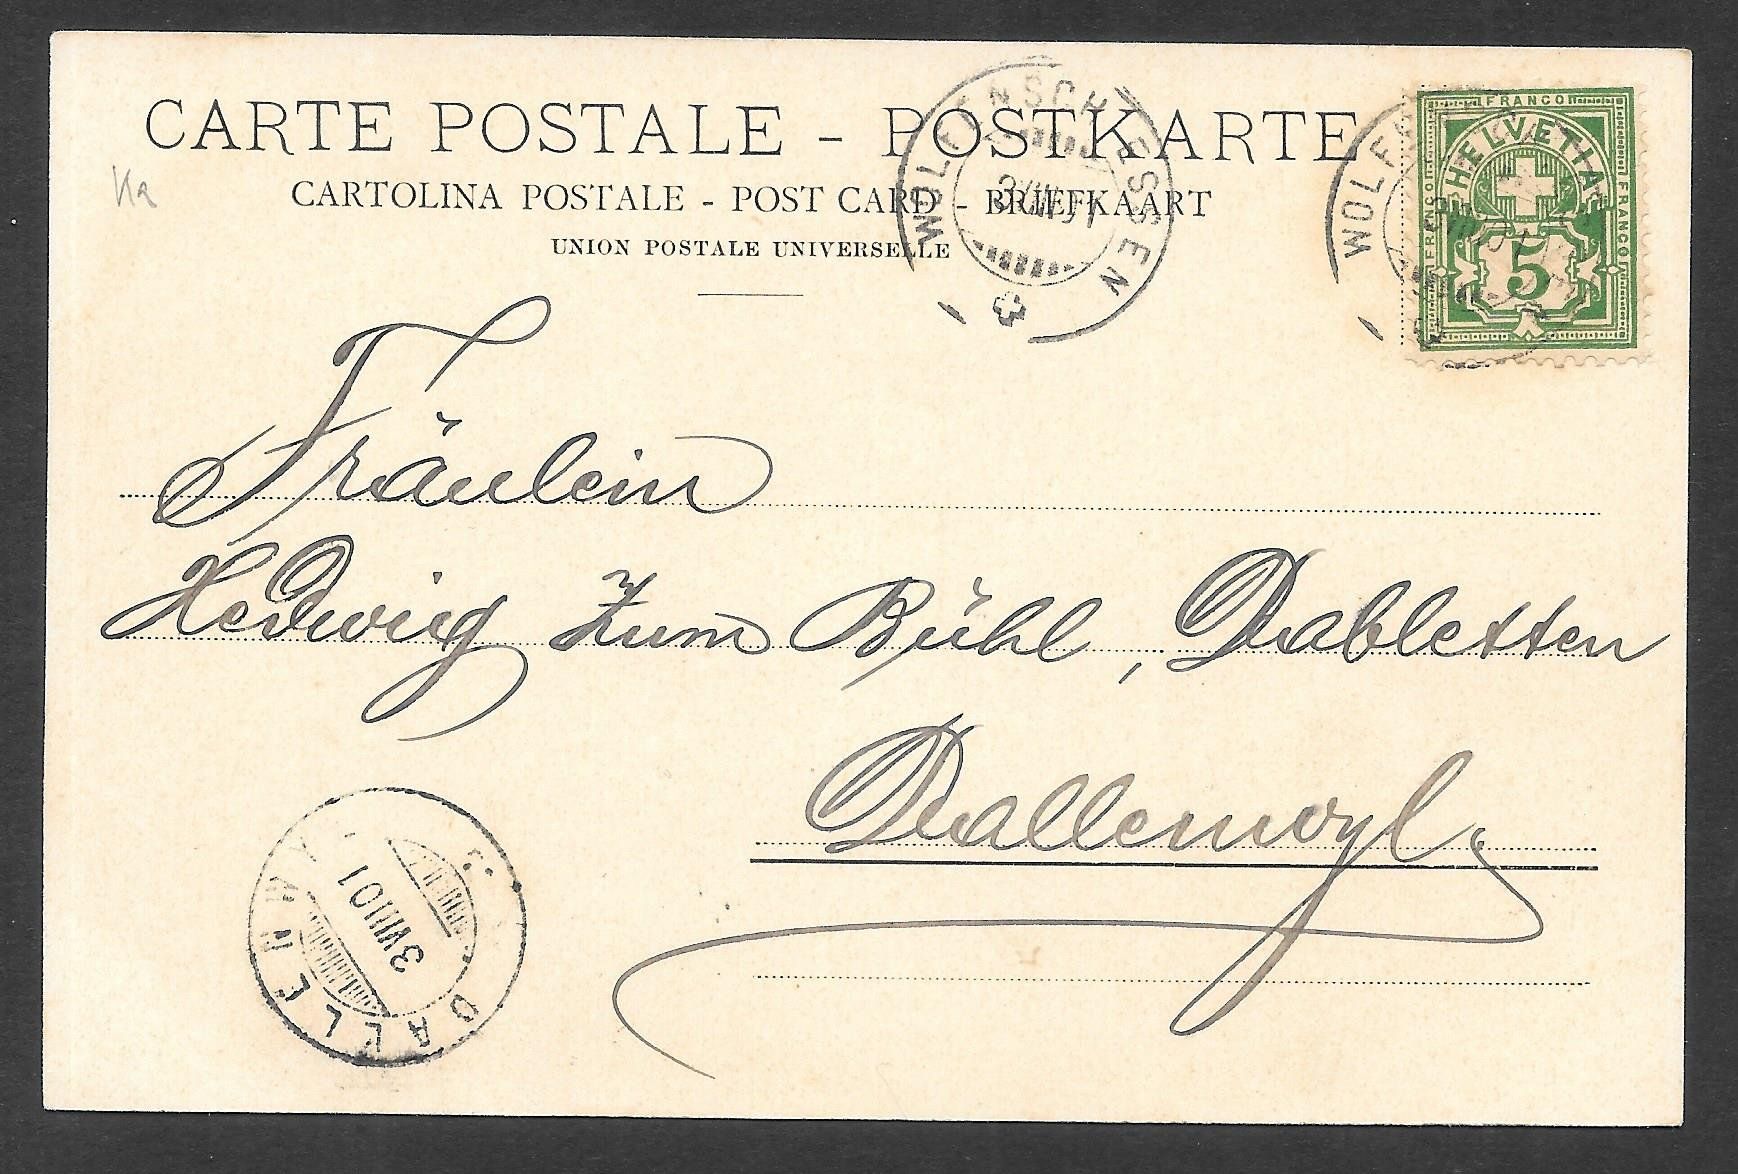 CARTE POSTALE - POSTKARTE
CARTOLINA POSTALE - POST CARD - BRIEFKAART
UNION POSTALE UNIVERSELLE
WOLFENSCHIESSEN
3 VIII 01
WOLF
FRANCO
FRANCO
FRANCO
HELVETIA
5
Fräulein
Hedwig Zum Bühl, Dabletten
Dallenwyl
DALLENWYL
3 VIII 01